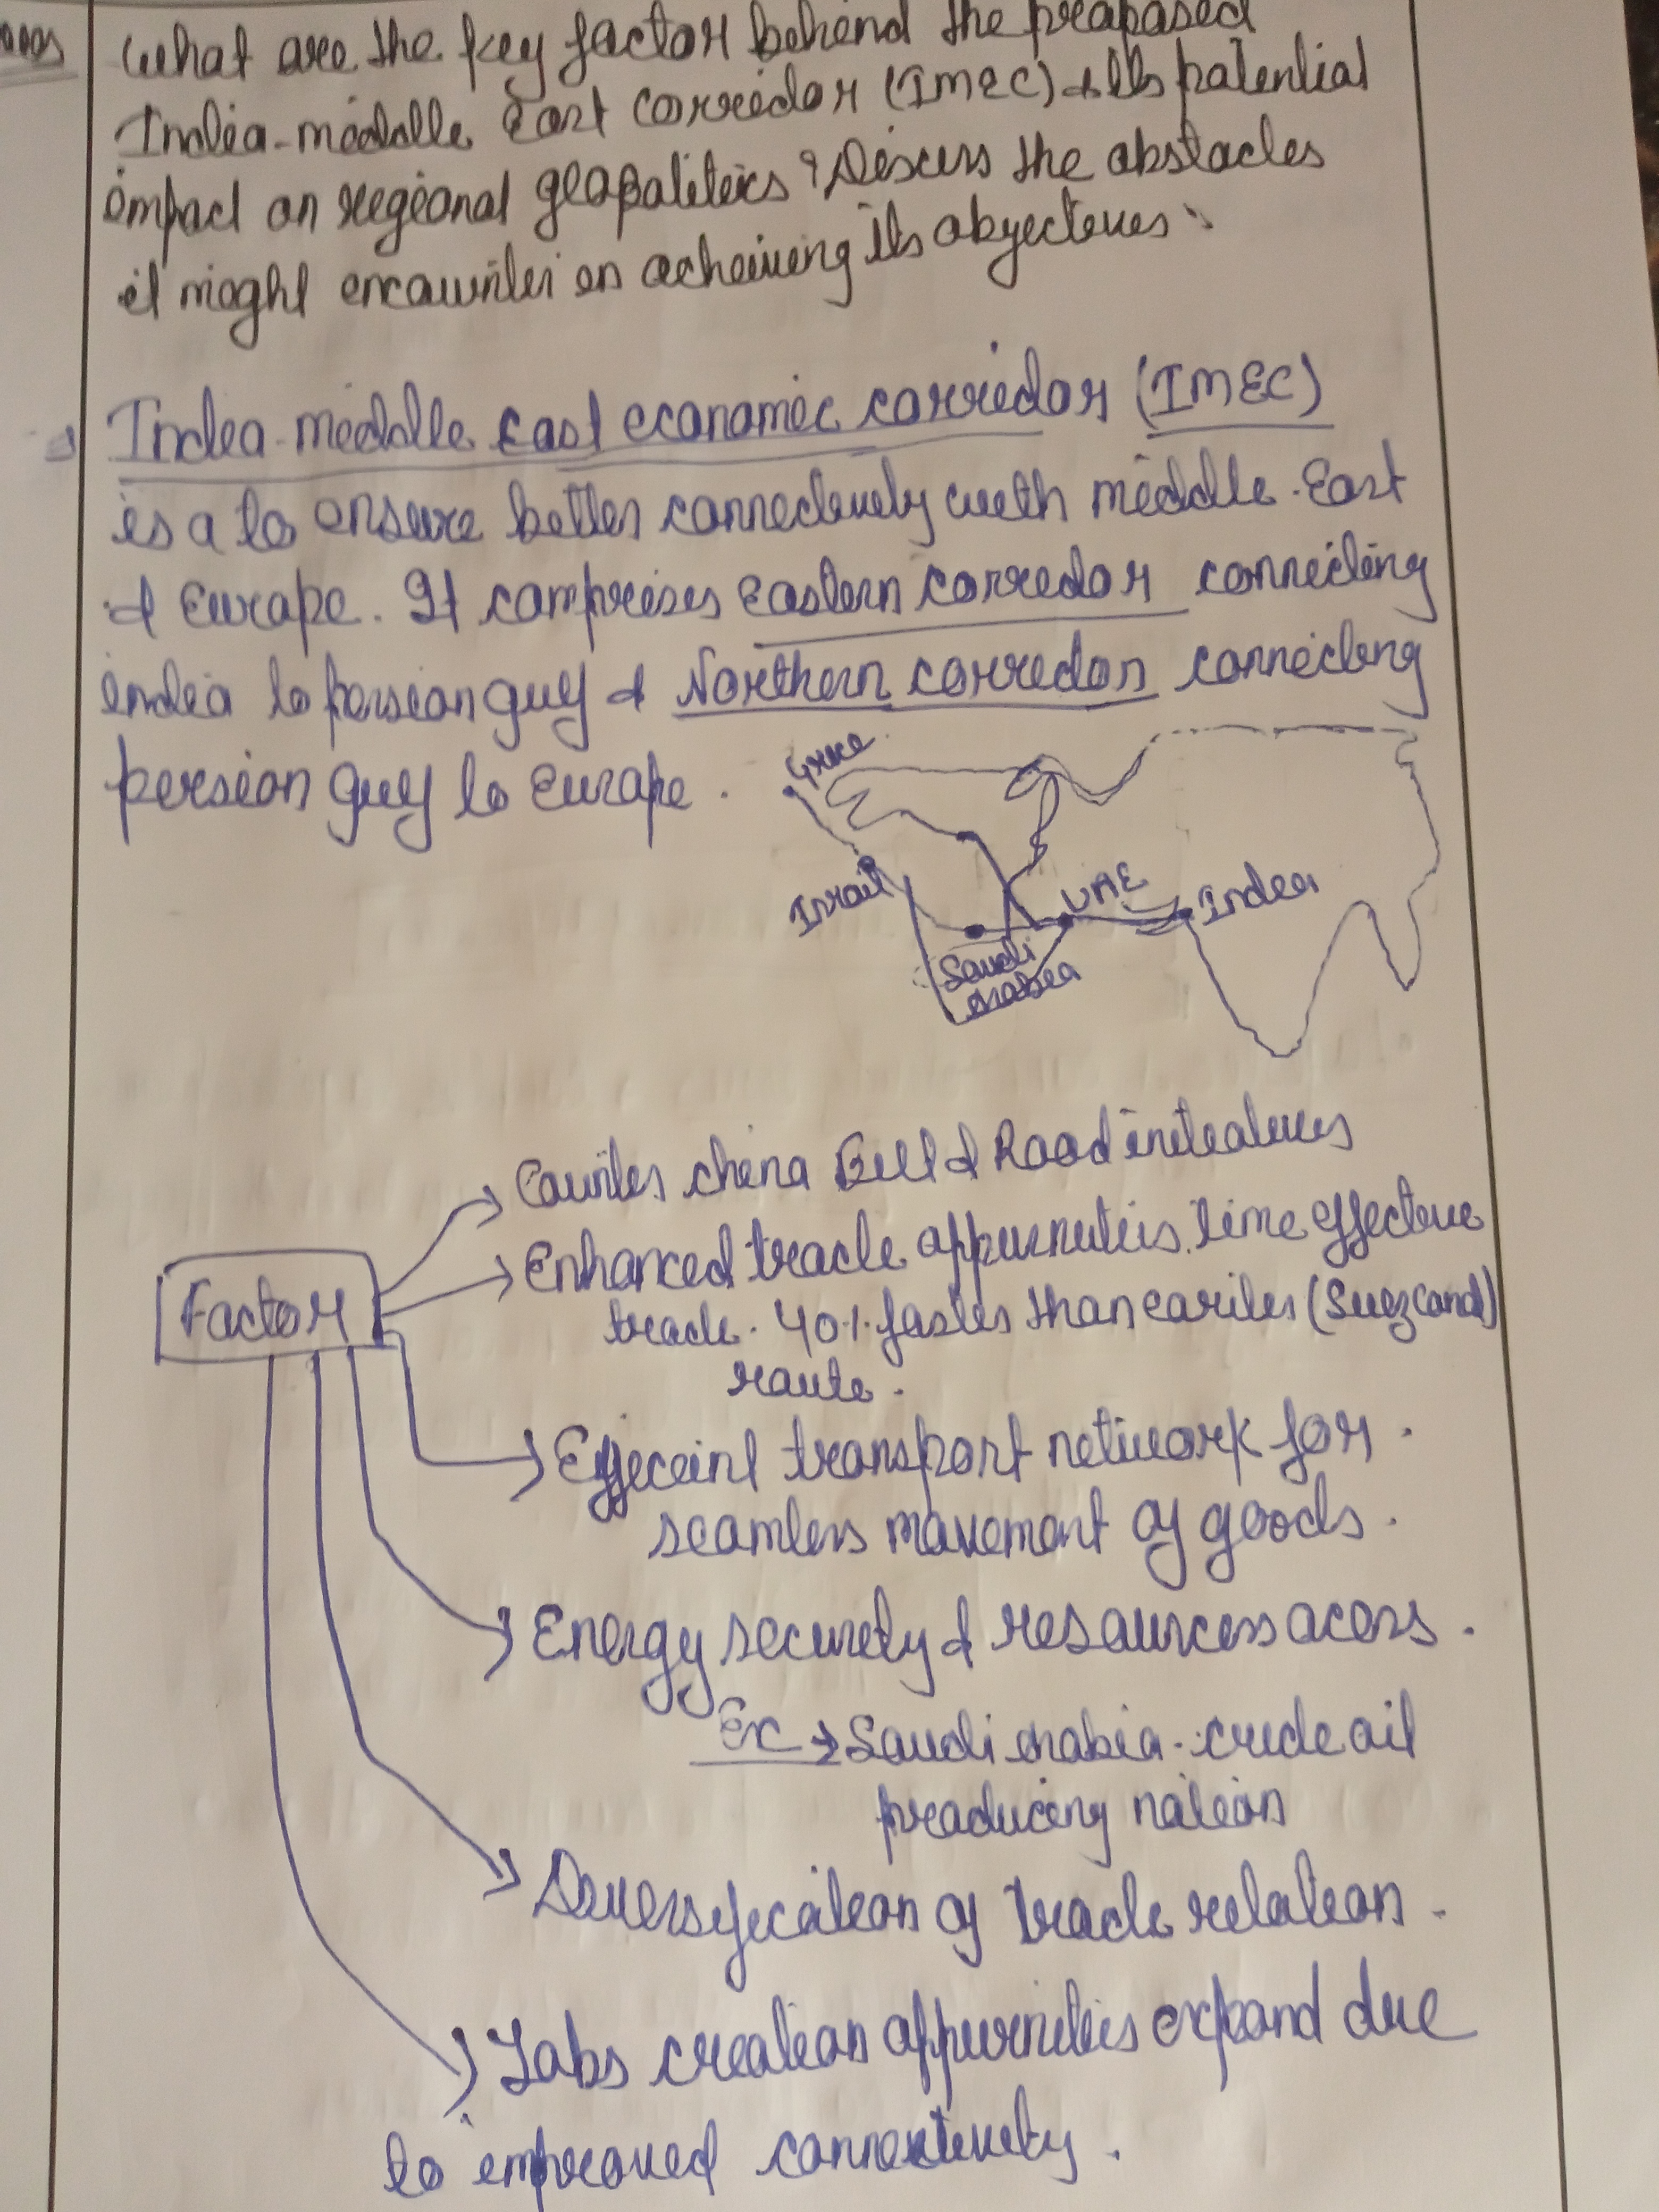 What are the key factor behind the proposed
India-middle East corridor (IMEC) & Its potential
impact on regional geopolitics? Discuss the obstacles
it might encounter in acheiving its objectives:
India-middle East economic corridor (IMEC)
is a to ensure better connectivity with middle-East
& Europe. It comprises Eastern corridor connecting
india to persian guy & Northern corridor connecting
persian guy to Europe.
Grece
Israil
UAE
India
Saudi
Arabia
Factor
Counter china Belt & Road initiatives
Enhanced trade oppurnuteis. time effective
trade. 40% faster than (Suez canal)
route.
Effeceint transport network for
seamless movement of goods.
Energy security & resourcess acess.
Ex → Saudi Arabia - crude oil
producing nation
Diversification of trade relation.
Jobs creation oppurniteis expand due
to improved connectivity.